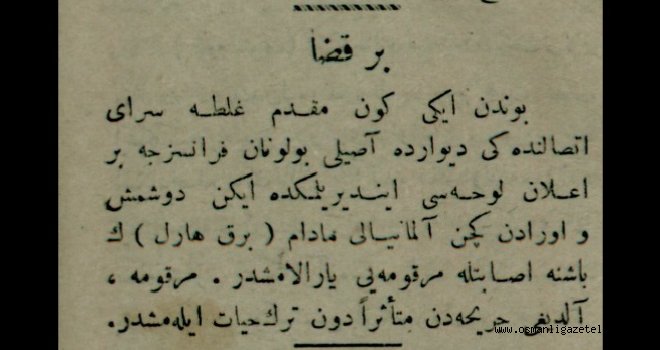 بر قضا
بوندن ایکی کون مقدم غلطه سرای
اتصالنده کی دیوارده آصیلی بولونان فرانسزجه بر
اعلان لوحه‌سی ایندیریلمکده ایکن دوشمش
و اورادن کچن آلمانیالی مادام ( برق هارل ) ك
باشنه اصابتله مرقومه‌یی یارالامشدر . مرقومه ،
آلدیغی جریحه‌دن متأثراً دون ترك حیات ایله‌مشدر.
www.osmanligazetel